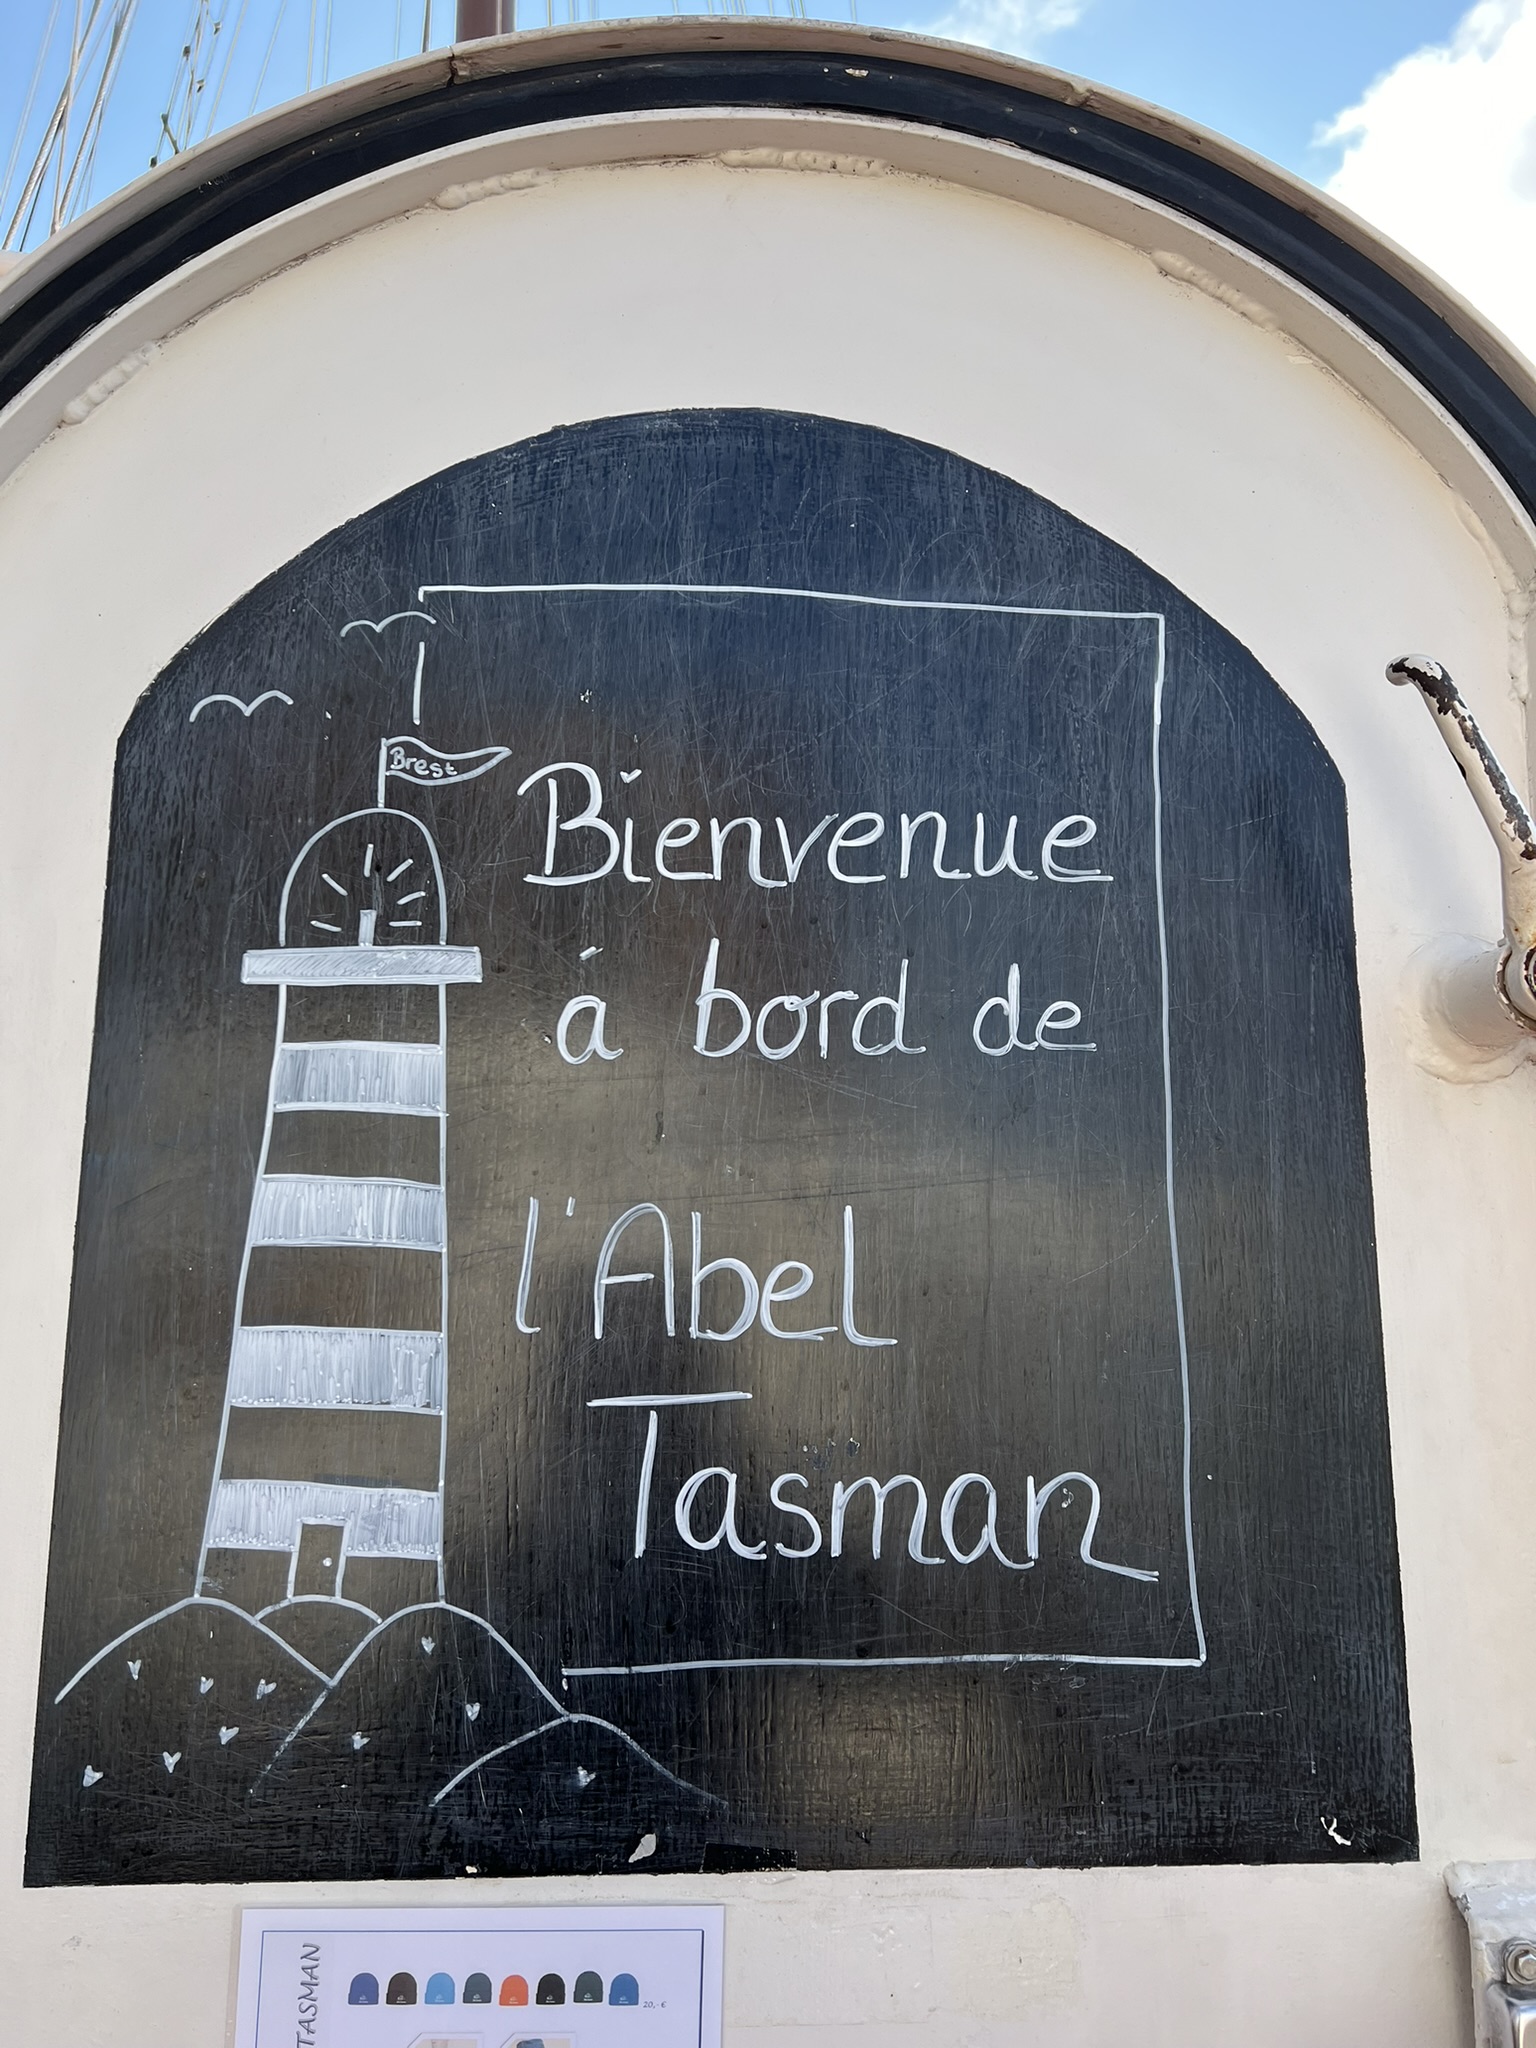 Brest
Bienvenue
á bord de
l'Abel
Tasman
TASMAN
20,-€